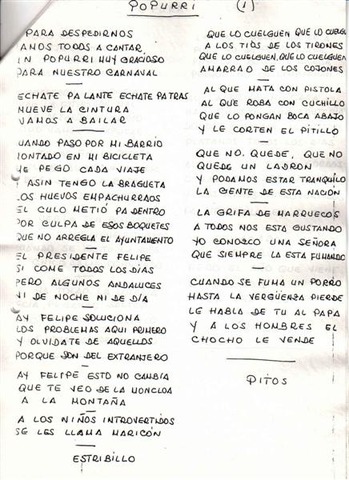 POPURRI (1)
PARA DESPEDIRNOS
VAMOS TODOS A CANTAR
UN POPURRI MUY GRACIOSO
PARA NUESTRO CARNAVAL
ECHATE PA LANTE ECHATE PA TRAS
MUEVE LA CINTURA
VAMOS A BAILAR
CUANDO PASO POR MI BARRIO
MONTADO EN MI BICICLETA
ME PEGO CADA VIAJE
Y ASIN TENGO LA BRAGUETA
LOS HUEVOS EMPACHURRAOS
EL CULO METIO PA DENTRO
POR CULPA DE ESOS BOQUETES
QUE NO ARREGLA EL AYUNTAMENTO
EL PRESIDENTE FELIPE
SI COME TODOS LOS DIAS
PERO ALGUNOS ANDALUCES
NI DE NOCHE NI DE DIA
AY FELIPE SOLUCIONA
LOS PROBLEMAS AQUI PRIMERO
Y OLVIDATE DE AQUELLOS
PORQUE SON DEL EXTRANJERO
AY FELIPE ESTO NO CAMBIA
QUE TE VEO DE LA MONCLOA
A LA MONTAÑA
A LOS NIÑOS INTROVERTIDOS
SE LES LLAMA MARICÓN
ESTRIBILLO
QUE LO CUELGUEN QUE LO CUELGUEN
A LOS TIOS DE LOS TIRONES
QUE LO CUELGUEN, QUE LO CUELGUEN
AMARRAO DE LOS COJONES
AL QUE MATA CON PISTOLA
AL QUE ROBA CON CUCHILLO
QUE LO PONGAN BOCA ABAJO
Y LE CORTEN EL PITILLO
QUE NO. QUEDE, QUE NO
QUEDE UN LADRON
Y PODAMOS ESTAR TRANQUILO
LA GENTE DE ESTA NACIÓN
LA GRIFA DE MARRUECOS
A TODOS NOS ESTA GUSTANDO
YO CONOZCO UNA SEÑORA
QUE SIEMPRE LA ESTA FUMANDO
CUANDO SE FUMA UN PORRO
HASTA LA VERGÜENZA PIERDE
LE HABLA DE TU AL PAPA
Y A LOS HOMBRES EL
CHOCHO LE VENDE
PITOS